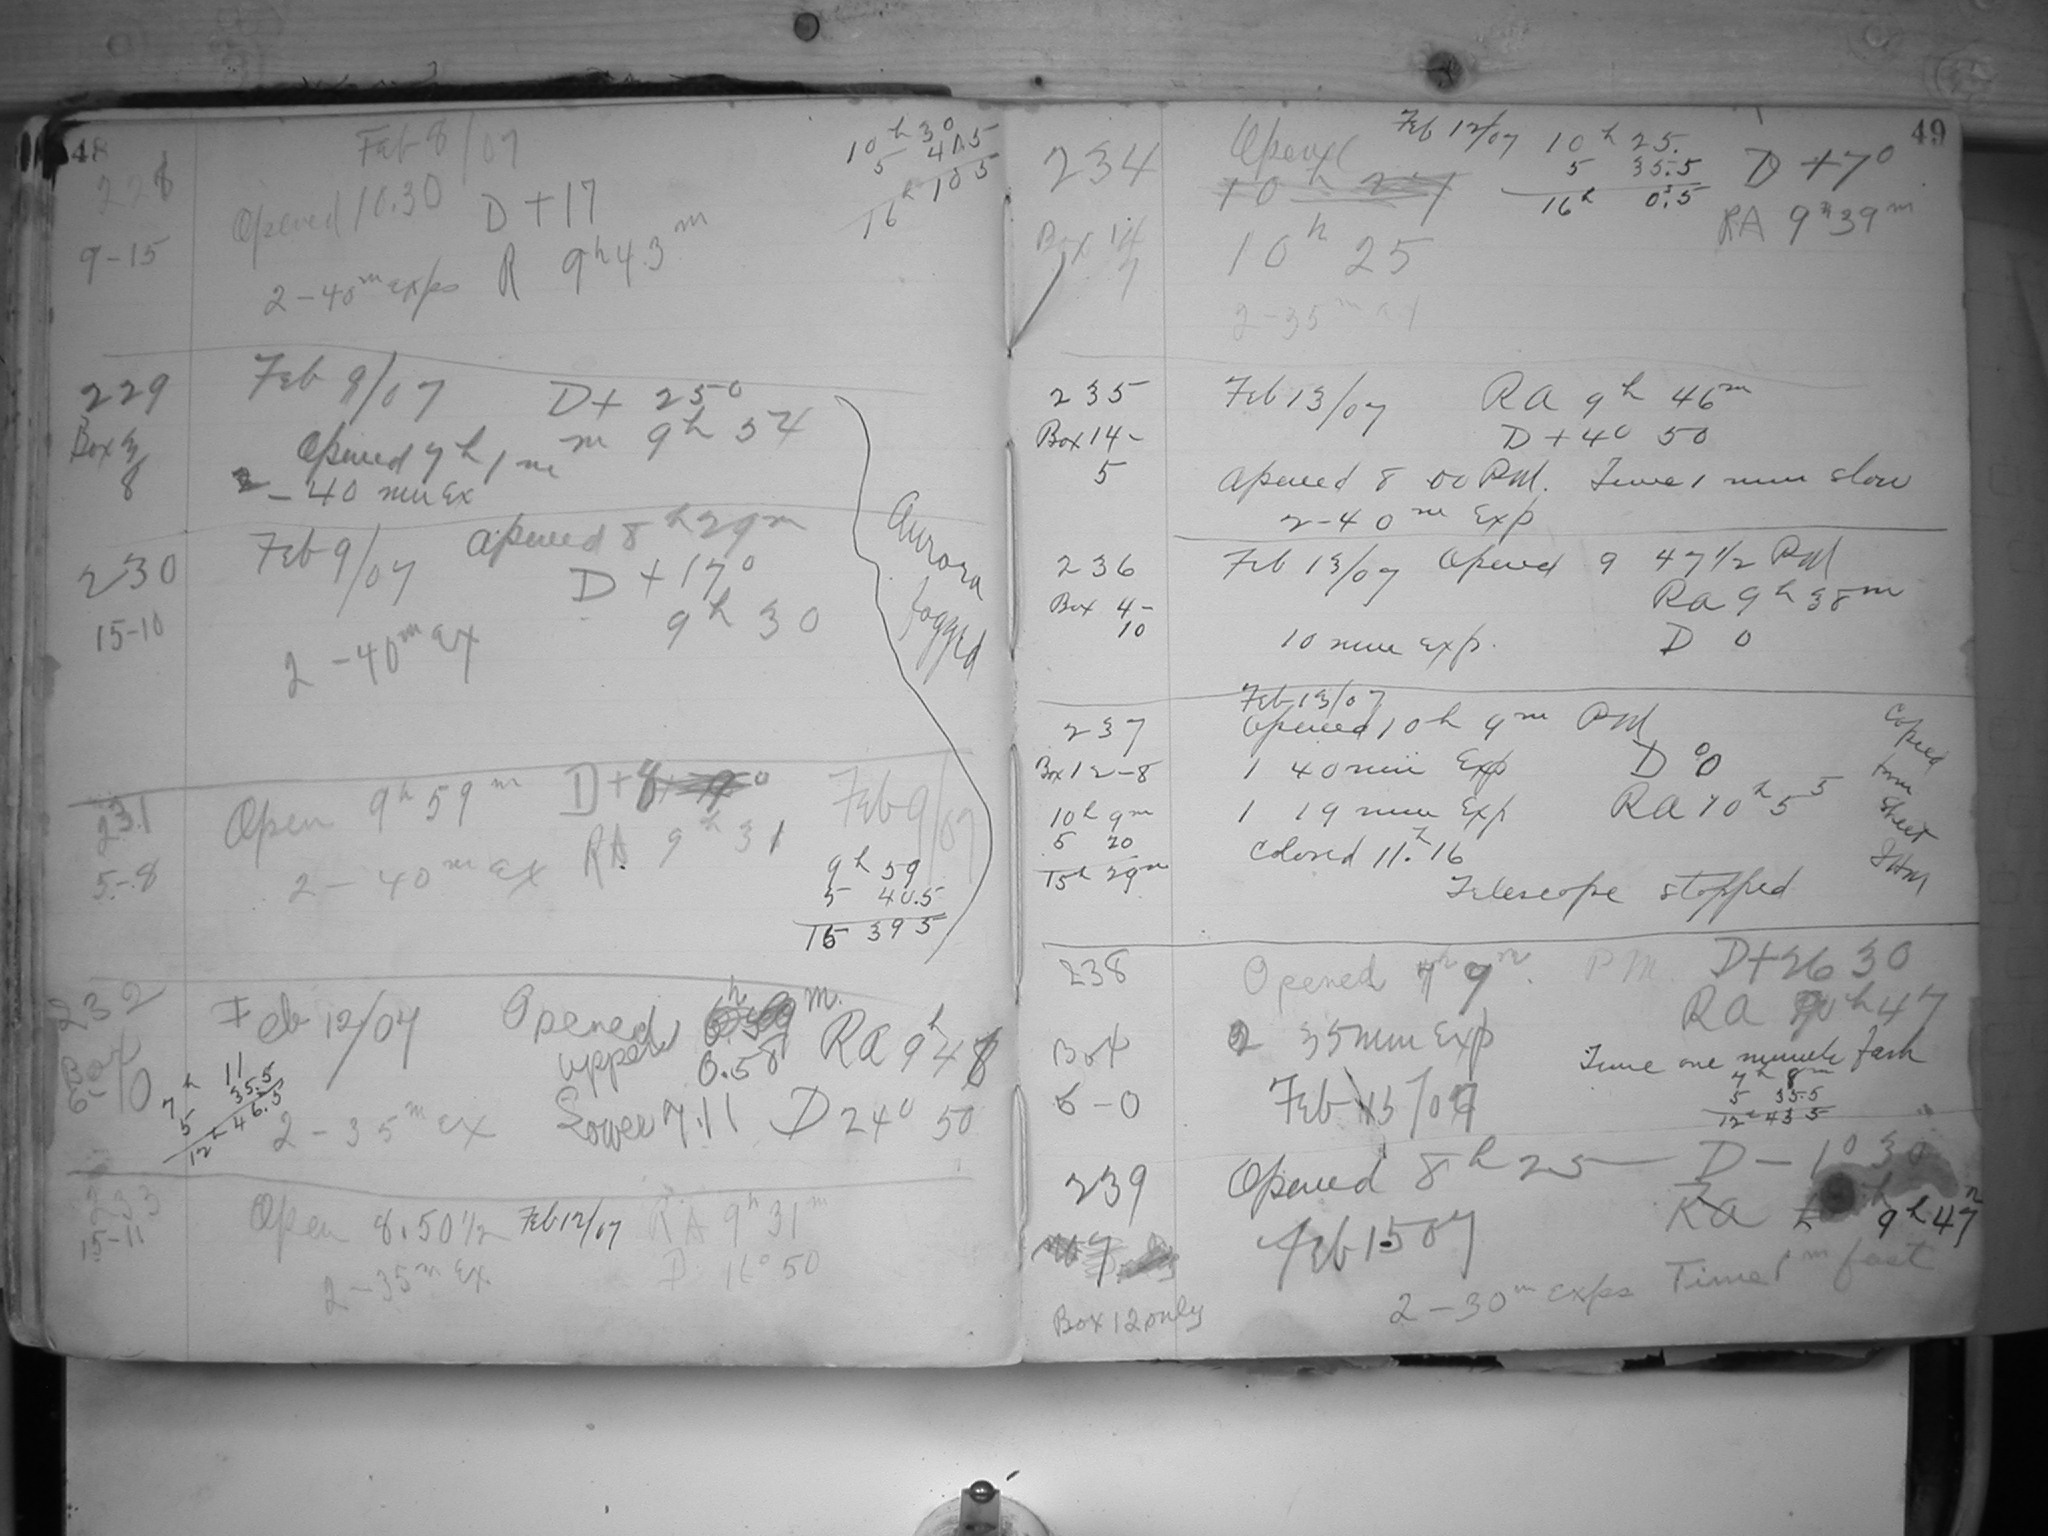 48
Feb 8/07
10h 30
5 40.5
16h 10 5
228
Opened 10.30 D +17
9-15
2-40m exps R 9h 43m
229
Feb 9/07 D + 25°
Box 3
8
Opened 7h 1m 9h 54
2 - 40 min Ex
230
Feb 9/07 Opened 8h 29m
D +17°
15-10
9h 30
2 -40m Ex
Aurora
fogged
231
Open 9h 59m D+8 Feb 9/07
5-8
2 - 40m ex RA 9h 31
9h 59
5 40.5
15 39 5
232
Feb 12/07 Opened m. RA 9h 48
upper 6.58
Box
10
7h 11
5 35.5
12h 46.5
2 - 35m ex Lower 7.11 D 24° 50
233
15-11
Open 8.50 1/2 Feb 12/07 RA 9h 31m
2-35m Ex. D 16° 50
49
234
Opened Feb 12/07 10h 25.
5 35.5
16h 0.5
D +7°
RA 9h 39m
Box 14
7
10h 25
2-35m ex
235
Feb 13/07 RA 9h 46m
Box 14-
5
D +4° 50
Opened 8 00 PM. Time 1 min slow
2-40m Exp
236
Feb 13/07 Opened 9 47 1/2 PM
Box 4-
10
RA 9h 38m
10 min Exp. D 0
Feb 13/07
237
Opened 10h 9m PM
Box 12-8
1 40 min Exp D 0°
10h 9m
5 20
15h 29m
1 19 min Exp RA 10h 5 5
Colosed 11.h 16
Telescope stopped
Copied
from
Sheet
JHM
238
Opened 7h 9m. PM. D+26 30
2 35 min Exp RA 9h 47
Box
6-0
Feb 13/07
Time one minute fast
7h 8m
5 35.5
12h 43 5
239
Opened 8h 25 D - 1° 30
RA 9h 47m
Feb 15 07
2 - 30m exps Time 1m fast
Box 12 only